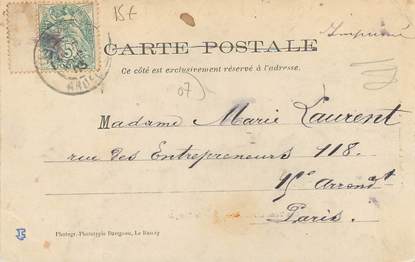 15€
Imprimé
CARTE POSTALE
Ce côté est exclusivement réservé à l'adresse.
07
Madame Marie Laurent
rue des Entrepreneurs 118.
15e Arrondt
Paris.
Photogr.-Phototypie Le Raincy